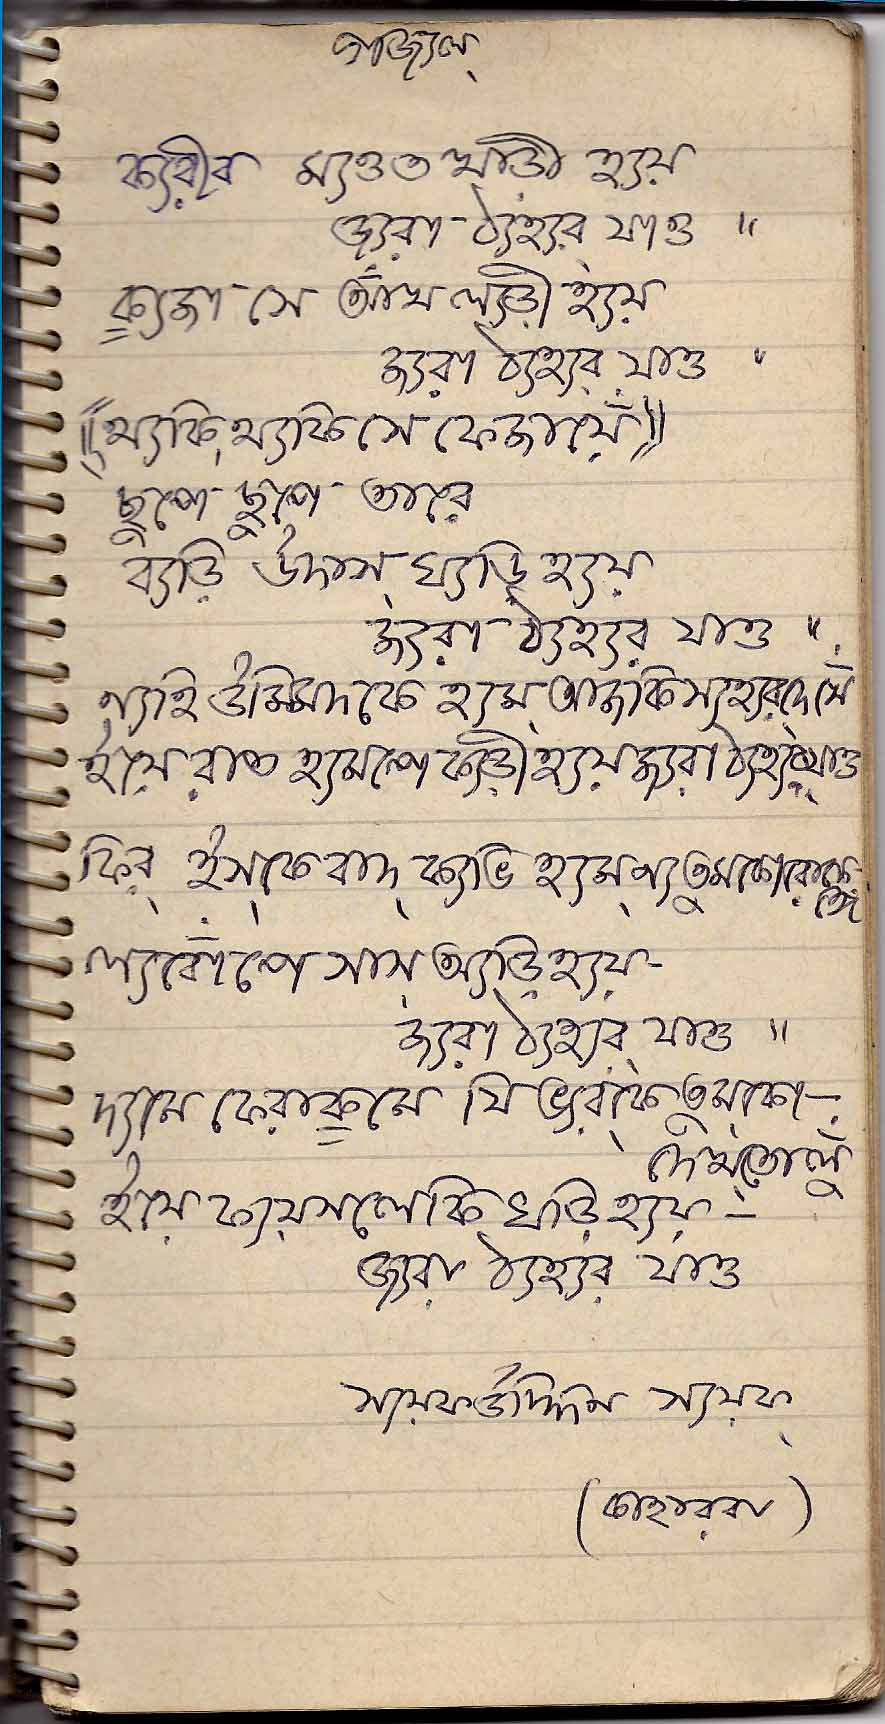 গজ্যল্
ক্যরীব ম্যওত খ্যড়ী হ্যয়
জ্যরা ঠ্যহ্যর্ যাও "
ক্যজা সে আঁখ ল্যড়ী হ্যয়
জ্যরা ঠ্যহ্যর্ যাও "
((থ্যকি, থ্যকি সে ফেজায়েঁ))
ছুপে ছুপে তারে
ব্যড়ি উদাস্ ঘ্যড়ি হ্যয়
জ্যরা ঠ্যহ্যর যাও "
ন্যই উমিদকে হ্যম্ আজকি স্যহ্যর্ দেখেঁ
ইয়ে রাত হ্যমপে ক্যড়ী হ্যয় জ্যরা ঠ্যহ্যর্ যাও
ফির্ ইসকে বাদ্ ক্যভি হ্যম্ ন্য তুমকো রোকেঙ্গে
ল্যবোঁপে সাস্ অ্যড়ি হ্যয়-
জ্যরা ঠ্যহ্যর্ যাও "
দ্যমে ফেরাক্ মে যি ভ্যরকে তুমকো-
দেখতোলুঁ
ইয়ে ফ্যয়সলেকি ঘড়ি হ্যয়-
জ্যরা ঠ্যহ্যর যাও
স্যয়ফউদ্দিন স্যয়ফ্
(কাহারবা)